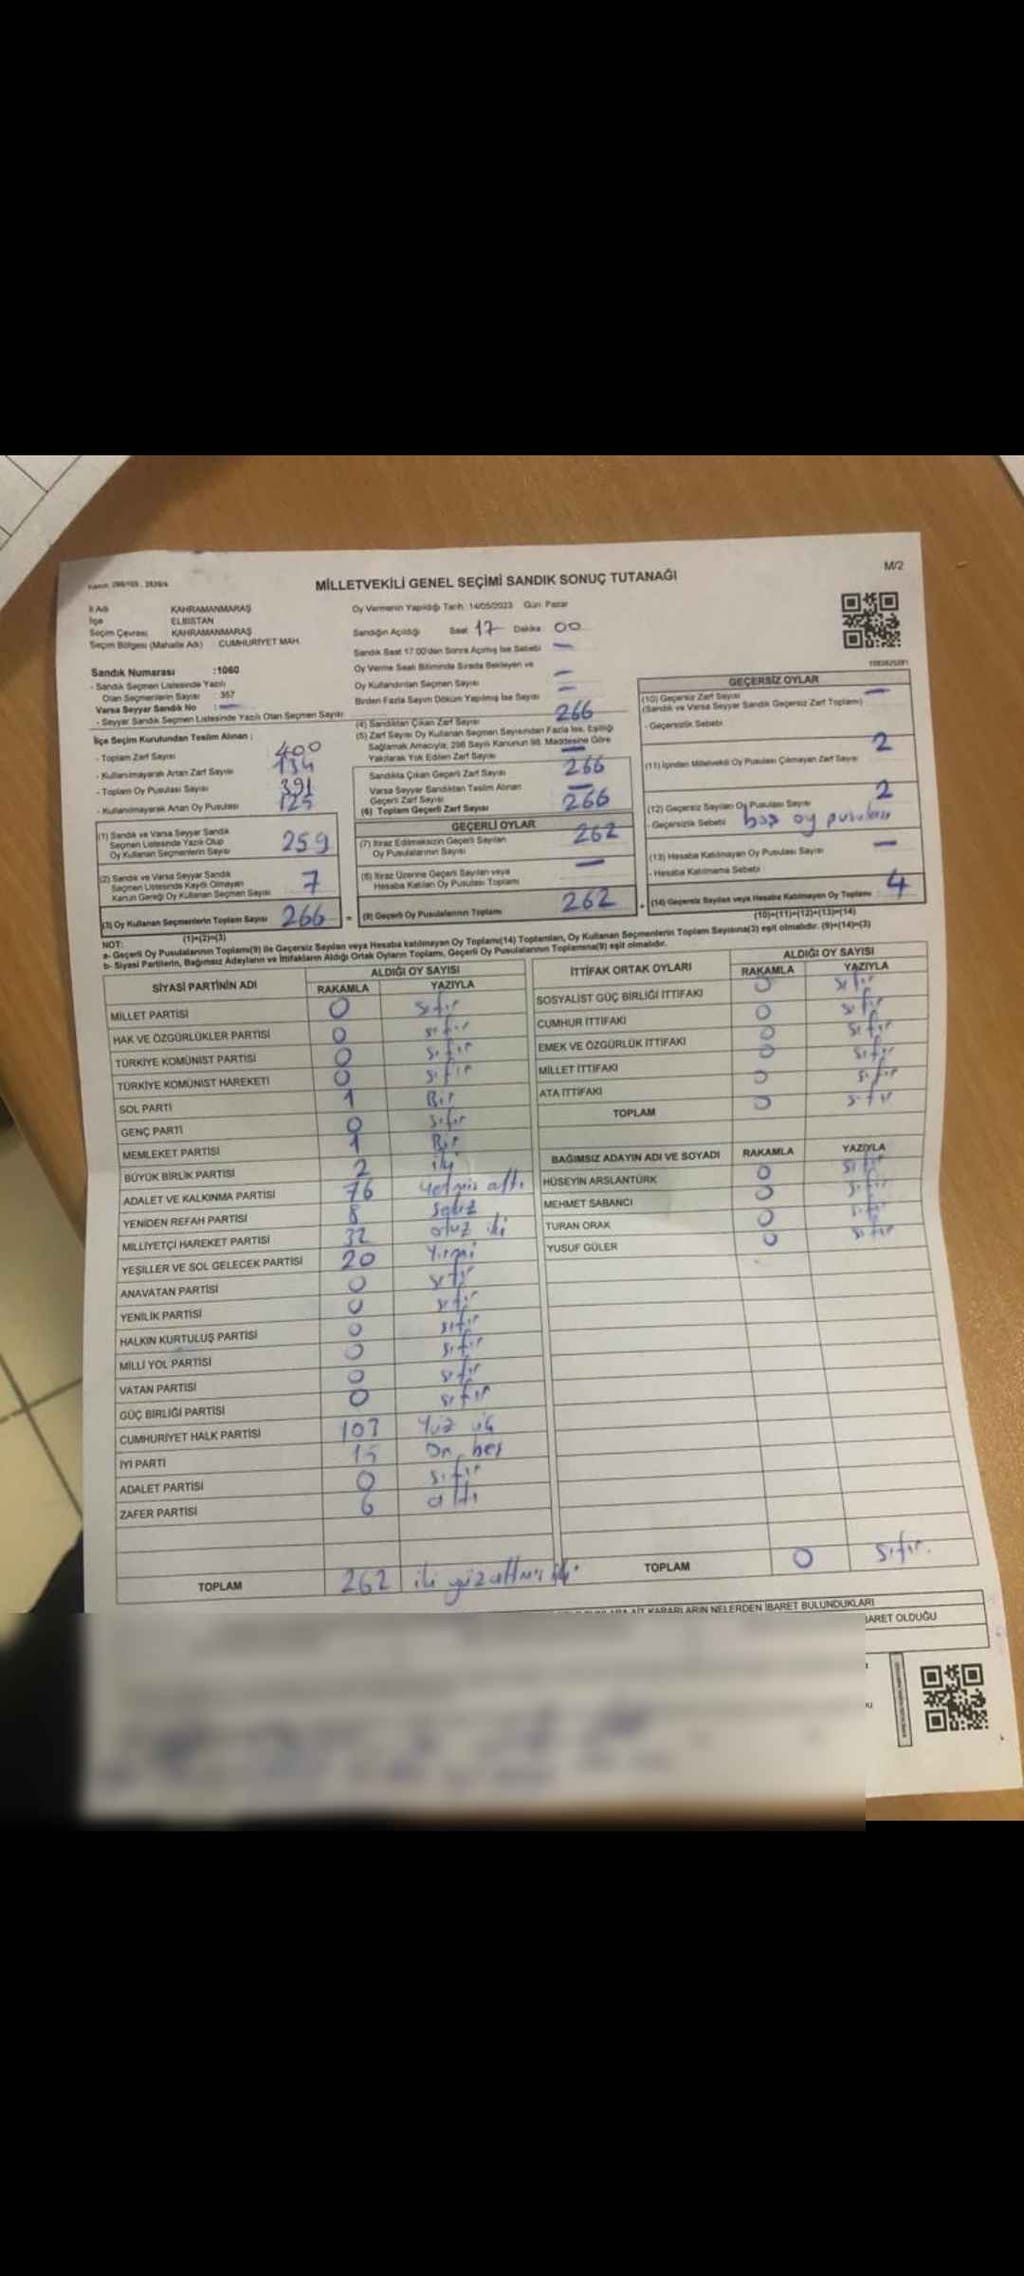 MİLLETVEKİLİ GENEL SEÇİMİ SANDIK SONUÇ TUTANAĞI
M/2
İl Adı KAHRAMANMARAŞ
İlçe ELBİSTAN
Seçim Çevresi KAHRAMANMARAŞ
Seçim Bölgesi (Mahalle Adı) CUMHURİYET MAH.
Oy Vermenin Yapıldığı Tarih: 14/05/2023 Gün: Pazar
Sandığın Açıldığı Saat 17 Dakika 00
Sandık Saat 17:00'den Sonra Açımış İse Sebebi —
Oy Verme Saati Bitiminde Sırada Bekleyen ve
Oy Kullandırılan Seçmen Sayısı —
Birden Fazla Sayım Döküm Yapılmış İse Sayısı —
Sandık Numarası :1060
- Sandık Seçmen Listesinde Yazılı
Olan Seçmenlerin Sayısı : 357
Varsa Seyyar Sandık No : —
- Seyyar Sandık Seçmen Listesinde Yazılı Olan Seçmen Sayısı
İlçe Seçim Kurulundan Teslim Alınan :
- Toplam Zarf Sayısı 400
- Kullanılmayarak Artan Zarf Sayısı 134
- Toplam Oy Pusulası Sayısı 391
- Kullanılmayarak Artan Oy Pusulası 125
(1) Sandık ve Varsa Seyyar Sandık
Seçmen Listesinde Yazılı Olup
Oy Kullanan Seçmenlerin Sayısı 259
(2) Sandık ve Varsa Seyyar Sandık
Seçmen Listesinde Kaydı Olmayan
Kanun Gereği Oy Kullanan Seçmen Sayısı 7
(3) Oy Kullanan Seçmenlerin Toplam Sayısı 266
(1)+(2)=(3)
(4) Sandıktan Çıkan Zarf Sayısı 266
(5) Zarf Sayısı Oy Kullanan Seçmen Sayısından Fazla İse, Eşitliği
Sağlamak Amacıyla, 298 Sayılı Kanunun 98. Maddesine Göre
Yakılarak Yok Edilen Zarf Sayısı —
Sandıkta Çıkan Geçerli Zarf Sayısı 266
Varsa Seyyar Sandıktan Teslim Alınan
Geçerli Zarf Sayısı —
(6) Toplam Geçerli Zarf Sayısı 266
GEÇERLİ OYLAR
(7) İtiraz Edilmeksizin Geçerli Sayılan
Oy Pusulalarının Sayısı 262
(8) İtiraz Üzerine Geçerli Sayılan veya
Hesaba Katılan Oy Pusulası Toplamı —
(9) Geçerli Oy Pusulalarının Toplamı 262
GEÇERSİZ OYLAR
(10) Geçersiz Zarf Sayısı —
(Sandık ve Varsa Seyyar Sandık Geçersiz Zarf Toplamı)
- Geçersizlik Sebebi
(11) İçinden Milletvekili Oy Pusulası Çıkmayan Zarf Sayısı 2
(12) Geçersiz Sayılan Oy Pusulası Sayısı 2
- Geçersizlik Sebebi boş oy pusulası
(13) Hesaba Katılmayan Oy Pusulası Sayısı —
- Hesaba Katılmama Sebebi
(14) Geçersiz Sayılan veya Hesaba Katılmayan Oy Toplamı 4
(10)+(11)+(12)+(13)=(14)
NOT:
a- Geçerli Oy Pusulalarının Toplamı(9) ile Geçersiz Sayılan veya Hesaba katılmayan Oy Toplamı(14) Toplamları, Oy Kullanan Seçmenlerin Toplam Sayısına(3) eşit olmalıdır. (9)+(14)=(3)
b- Siyasi Partilerin, Bağımsız Adayların ve İttifakların Aldığı Ortak Oyların Toplamı, Geçerli Oy Pusulalarının Toplamına(9) eşit olmalıdır.
SİYASİ PARTİNİN ADI ALDIĞI OY SAYISI
RAKAMLA YAZIYLA
MİLLET PARTİSİ 0 sıfır
HAK VE ÖZGÜRLÜKLER PARTİSİ 0 sıfır
TÜRKİYE KOMÜNİST PARTİSİ 0 sıfır
TÜRKİYE KOMÜNİST HAREKETİ 0 sıfır
SOL PARTİ 1 Bir
GENÇ PARTİ 0 sıfır
MEMLEKET PARTİSİ 1 Bir
BÜYÜK BİRLİK PARTİSİ 2 iki
ADALET VE KALKINMA PARTİSİ 76 yetmiş altı
YENİDEN REFAH PARTİSİ 8 sekiz
MİLLİYETÇİ HAREKET PARTİSİ 32 otuz iki
YEŞİLLER VE SOL GELECEK PARTİSİ 20 Yirmi
ANAVATAN PARTİSİ 0 sıfır
YENİLİK PARTİSİ 0 sıfır
HALKIN KURTULUŞ PARTİSİ 0 sıfır
MİLLİ YOL PARTİSİ 0 sıfır
VATAN PARTİSİ 0 sıfır
GÜÇ BİRLİĞİ PARTİSİ 0 sıfır
CUMHURİYET HALK PARTİSİ 103 Yüz üç
İYİ PARTİ 15 On beş
ADALET PARTİSİ 0 sıfır
ZAFER PARTİSİ 6 altı
TOPLAM 262 iki yüz altmış iki
İTTİFAK ORTAK OYLARI ALDIĞI OY SAYISI
RAKAMLA YAZIYLA
SOSYALİST GÜÇ BİRLİĞİ İTTİFAKI 0 sıfır
CUMHUR İTTİFAKI 0 sıfır
EMEK VE ÖZGÜRLÜK İTTİFAKI 0 sıfır
MİLLET İTTİFAKI 0 sıfır
ATA İTTİFAKI 0 sıfır
TOPLAM 0 sıfır
BAĞIMSIZ ADAYIN ADI VE SOYADI RAKAMLA YAZIYLA
HÜSEYİN ARSLANTÜRK 0 sıfır
MEHMET SABANCI 0 sıfır
TURAN ORAK 0 sıfır
YUSUF GÜLER 0 sıfır
TOPLAM 0 sıfır.
KARARLARIN NELERDEN İBARET BULUNDUKLARI
BARET OLDUĞU